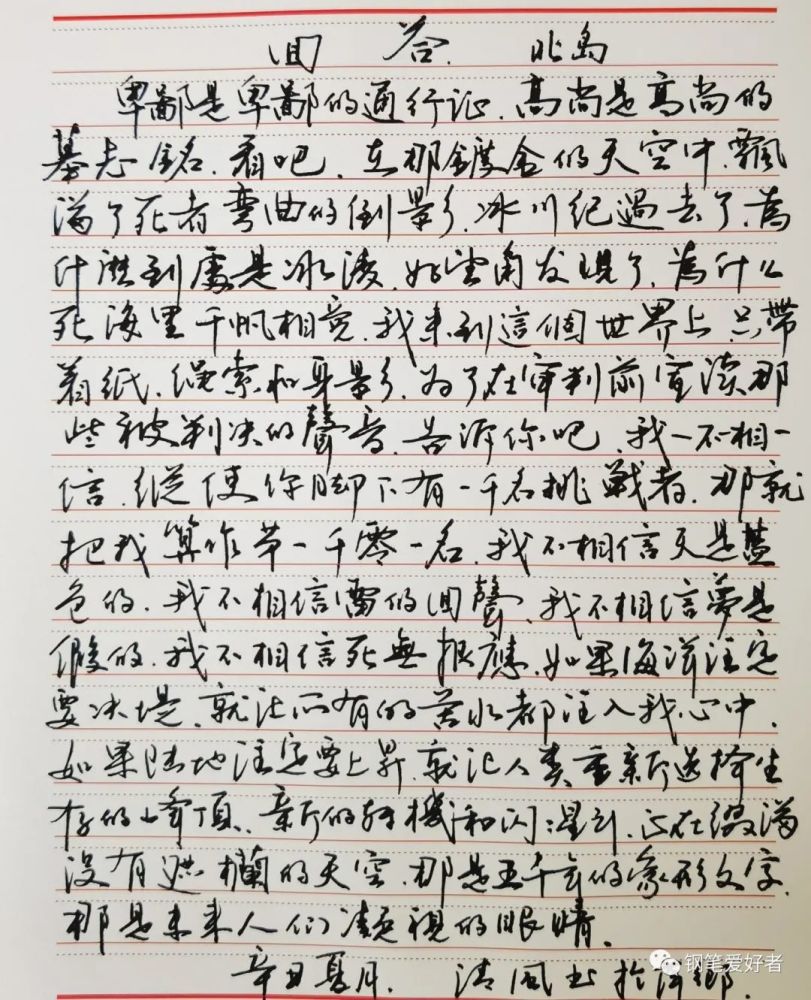 回 答 北岛
卑鄙是卑鄙的通行证、高尚是高尚的
墓志铭、看吧、在那镀金的天空中、飄
满了死者弯曲的倒影、冰川纪過去了、為
什麽到處是冰凌、好望角发現了、為什么
死海里千帆相竞、我来到這個世界上、只带
着纸、绳索和身影、为了在审判前宣读那
些被判决的聲音、告诉你吧、我一不相一
信、縱使你脚下有一千名挑戰者、那就
把我算作第一千零一名、我不相信天是蓝
色的、我不相信雷的回聲、我不相信夢是
假的、我不相信死無报應、如果海洋注定
要决堤、就让所有的苦水都注入我心中、
如果陆地注定要上昇、就让人类重新选择生
存的峰顶、新的转機和闪闪星斗、正在缀满
没有遮欄的天空、那是五千年的象形文字、
那是未来人们凝視的眼睛。
辛丑夏月、清風书於
钢笔爱好者